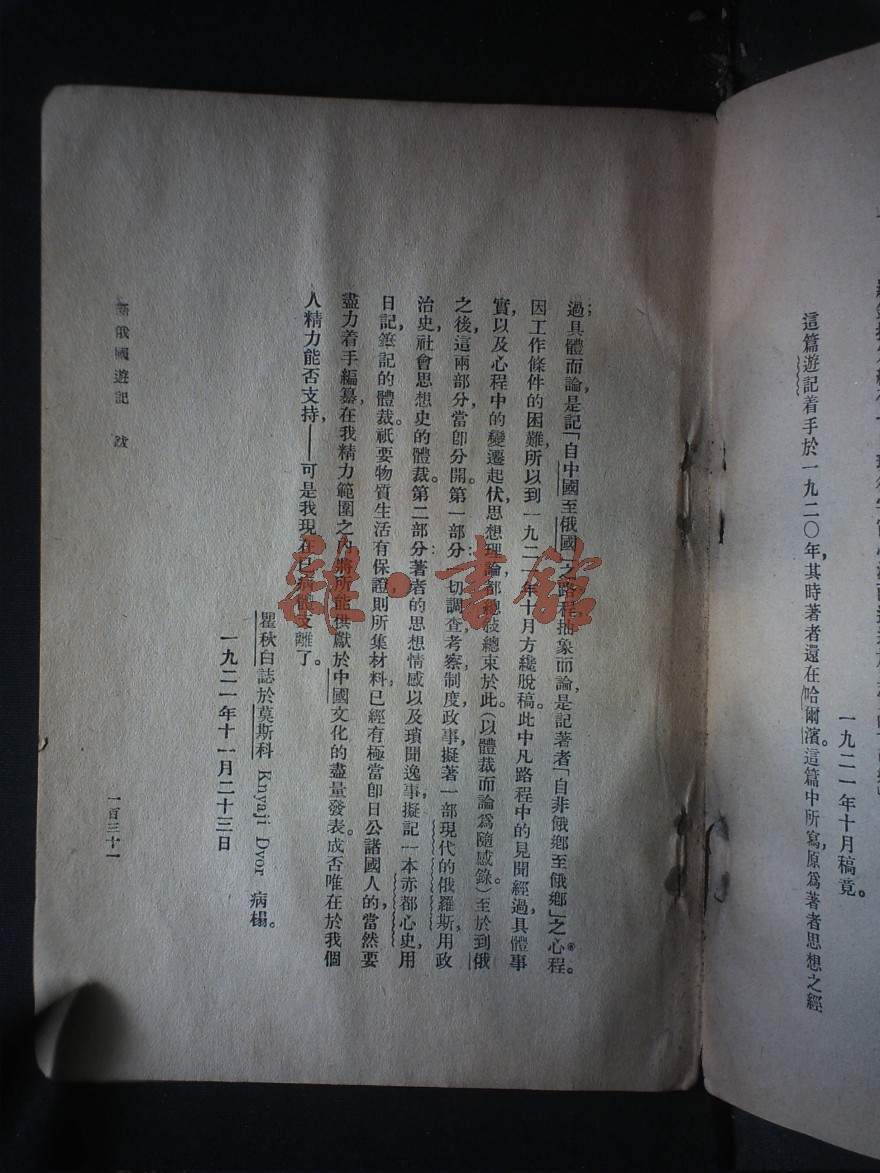 一九二一年十月稿竟。
這篇遊記着手於一九二〇年,其時著者還在哈爾濱。這篇中所寫,原爲著者思想之經
過;具體而論,是記「自中國至俄國」之路程,抽象而論,是記著者「自非餓鄉至餓鄉」之心程。
因工作條件的困難,所以到一九二一年十月方纔脫稿。此中凡路程中的見聞經過,具體事
實,以及心程中的變遷起伏,思想理論,都總束於此。(以體裁而論爲隨感錄。)至於到俄
之後,這兩部分當卽分開。第一部分:一切調查,考察,制度,政事,擬著一部現代的俄羅斯,用政
治史,社會思想史的體裁。第二部分:著者的思想情感以及瑣聞逸事,擬記一本赤都心史,用
日記,筆記的體裁。祇要物質生活有保證,則所集材料,已經有極當卽日公諸國人的,當然要
盡力着手編纂,在我精力範圍之內,將所能供獻於中國文化的盡量發表。成否唯在於我個
人精力能否支持,——可是我現在已病體支離了。
瞿秋白誌於莫斯科 Knyaji Dvor 病榻。
一九二一年十一月二十三日
新俄國遊記 跋
一百三十一
雜·書館